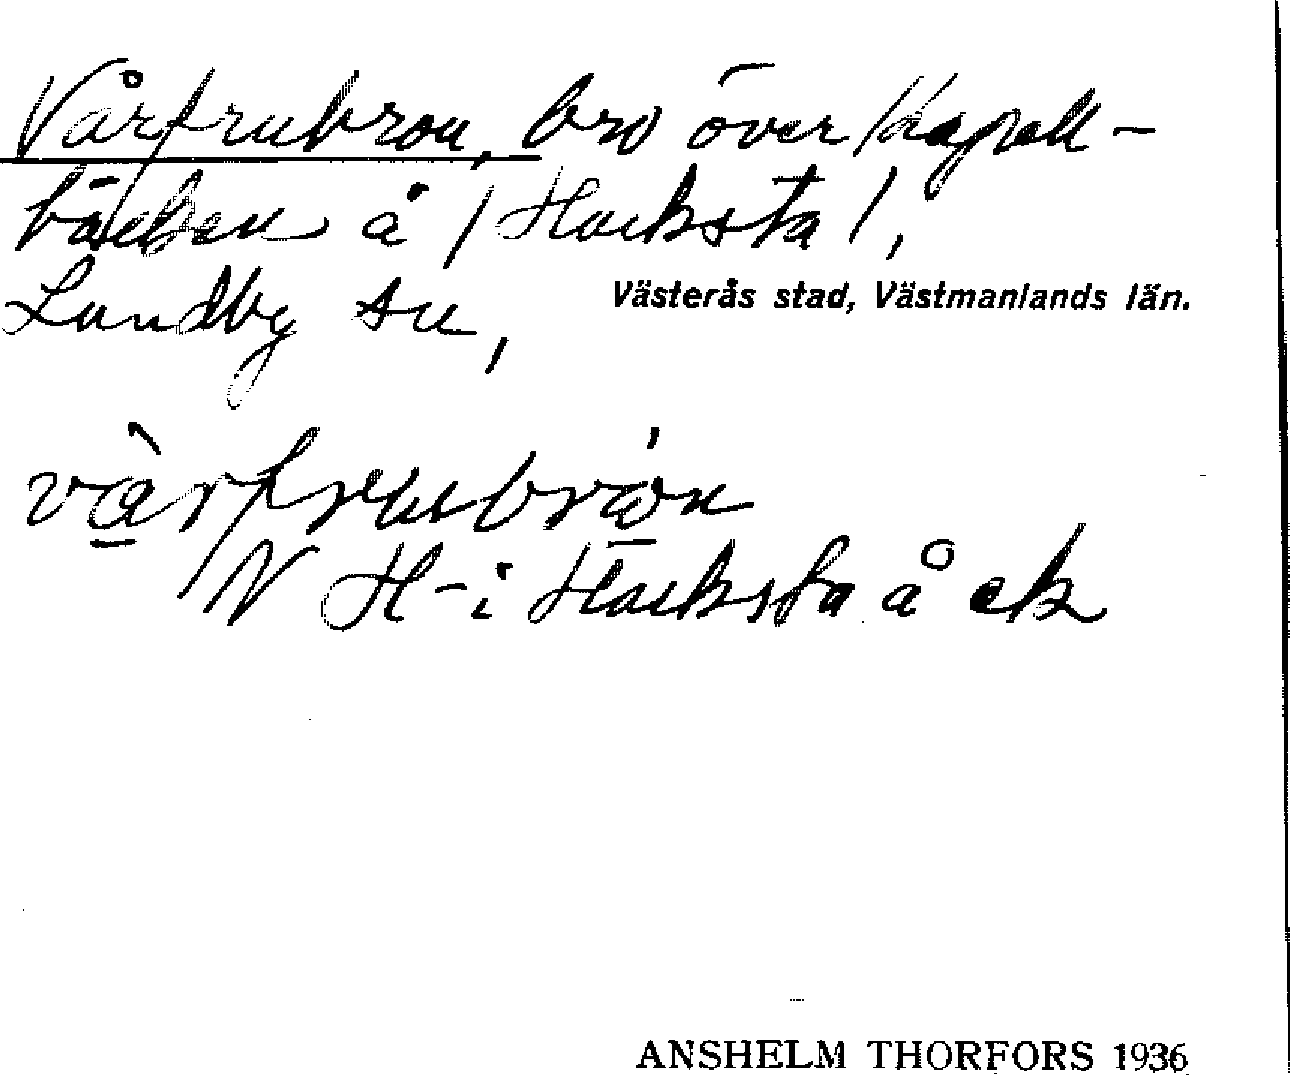 Vårfrubron, bro över Kapell-
bäcken å /Hacksta/,
Lundby sn,
Västerås stad, Västmanlands län.
vàrfrubrón
N H-i Hacksta å ek
ANSHELM THORFORS 1936